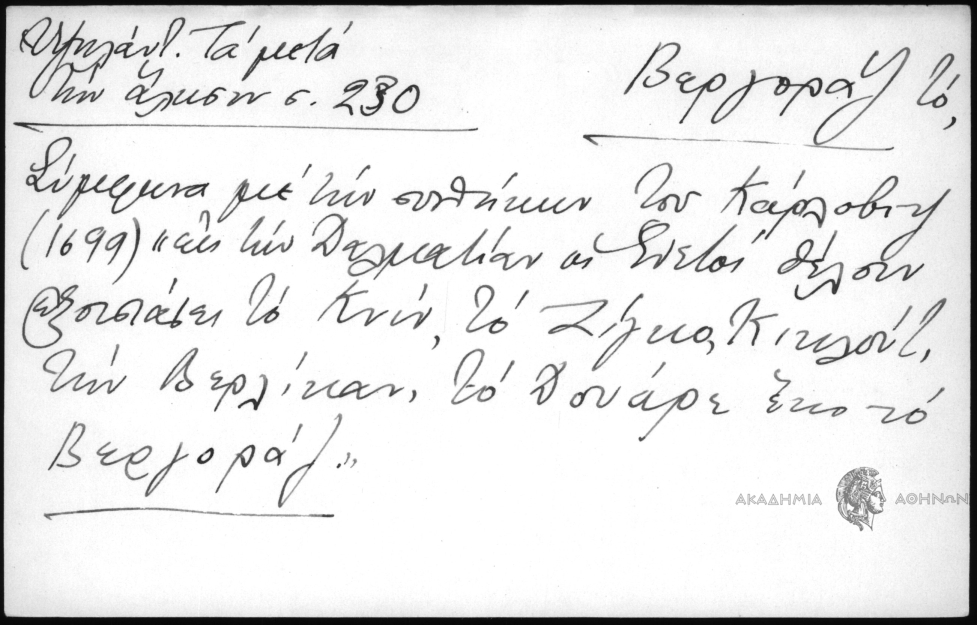 Ὑψηλάντ. Τά μετά
τήν ἅλωσιν σ. 230
Βεργοράζ τό,
Σύμφωνα μέ τήν συνθήκην τοῦ Κάρλοβιτζ
(1699) "εἰς τήν Δαλματίαν οἱ Ἐνετοί θέλουν
ἐξουσιάσει τό Κνίν, τό Σίγκο, Κικλούτ,
τήν Βερλίκαν, τό Δουάρε ἔτι τό
Βεργοράζ."
ΑΚΑΔΗΜΙΑ ΑΘΗΝΩΝ